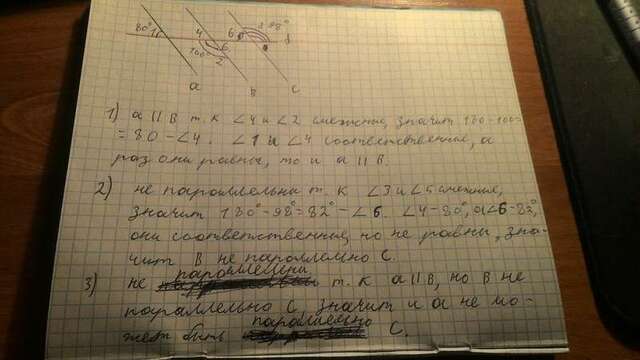 80° 1 4 6 3 98° d
5
100° 2
a B C
1) a || B т.к ∠4 и ∠2 смежные, значит 180-100=
=80-∠4. ∠1 и ∠4 соответственные, а
раз они равны, то и a || B.
2) не параллельны т.к ∠3 и ∠5 смежные,
значит 180°-98°=82°-∠6. ∠4-80°, а∠6-82°,
они соответственные, но не равны, зна-
чит B не параллельно C.
параллельны
3) не т.к a||B, но B не
параллельно C, значит и a не мо-
параллельно
жет быть C.